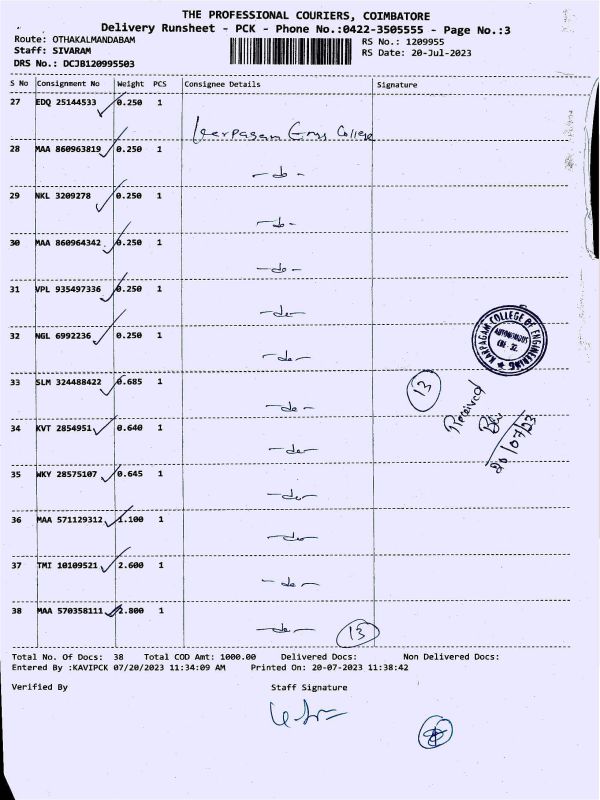 THE PROFESSIONAL COURIERS, COIMBATORE
Delivery Runsheet - PCK - Phone No.:0422-3505555 - Page No.:3
Route: OTHAKALMANDABAM
RS No.: 1209955
Staff: SIVARAM
RS Date: 20-Jul-2023
DRS No.: DCJB120995503
S No Consignment No Weight PCS Consignee Details Signature
27 EDQ 25144533 0.250 1
Karpagam Eng College
28 MAA 860963819 0.250 1
-do-
29 NKL 3209278 0.250 1
-do-
30 MAA 860964342 0.250 1
-do-
31 VPL 935497336 0.250 1
-do-
32 NGL 6992236 0.250 1
-do-
KARPAGAM COLLEGE OF ENGINEERING
AUTONOMOUS
CBE - 32
33 SLM 324488422 0.685 1
-do-
13
Received
20/07/23
34 KVT 2854951 0.640 1
-do-
35 WKY 28575107 0.645 1
-do-
36 MAA 571129312 1.100 1
-do-
37 TMI 10109521 2.600 1
-do-
38 MAA 570358111 2.800 1
-do-
13
Total No. Of Docs: 38 Total COD Amt: 1000.00 Delivered Docs: Non Delivered Docs:
Entered By :KAVIPCK 07/20/2023 11:34:09 AM Printed On: 20-07-2023 11:38:42
Verified By Staff Signature